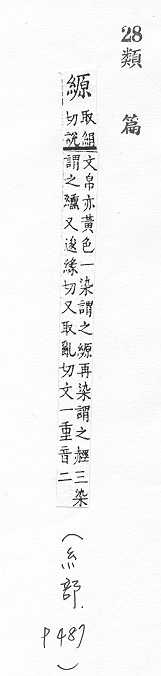 28
類篇
縓
取絹切說
文帛赤黃色一染謂之縓再染謂之䞓三染
謂之纁又逡緣切又取亂切文一重音二
（糸部.
P487）